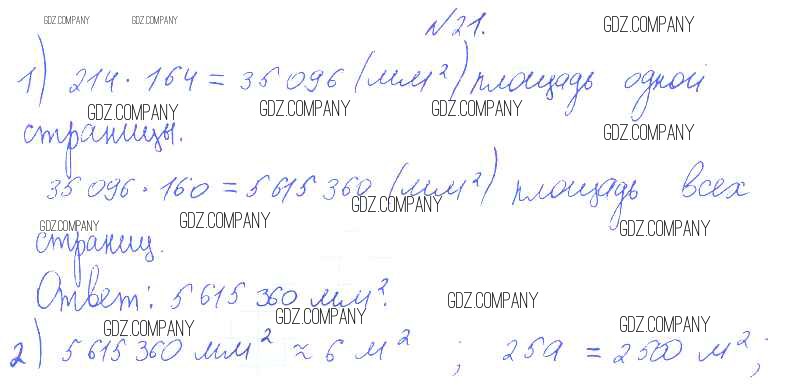 GDZ.COMPANY GDZ.COMPANY №21. GDZ.COMPANY
1) 214 · 164 = 35 096 (мм²) площадь одной
GDZ.COMPANY GDZ.COMPANY GDZ.COMPANY
страницы. GDZ.COMPANY
35 096 · 160 = 5 615 360 (мм²) площадь всех
GDZ.COMPANY
GDZ.COMPANY GDZ.COMPANY GDZ.COMPANY
страниц.
Ответ: 5 615 360 мм².
GDZ.COMPANY
GDZ.COMPANY GDZ.COMPANY GDZ.COMPANY
2) 5 615 360 мм² ≈ 6 м² ; 25а = 2500 м²;